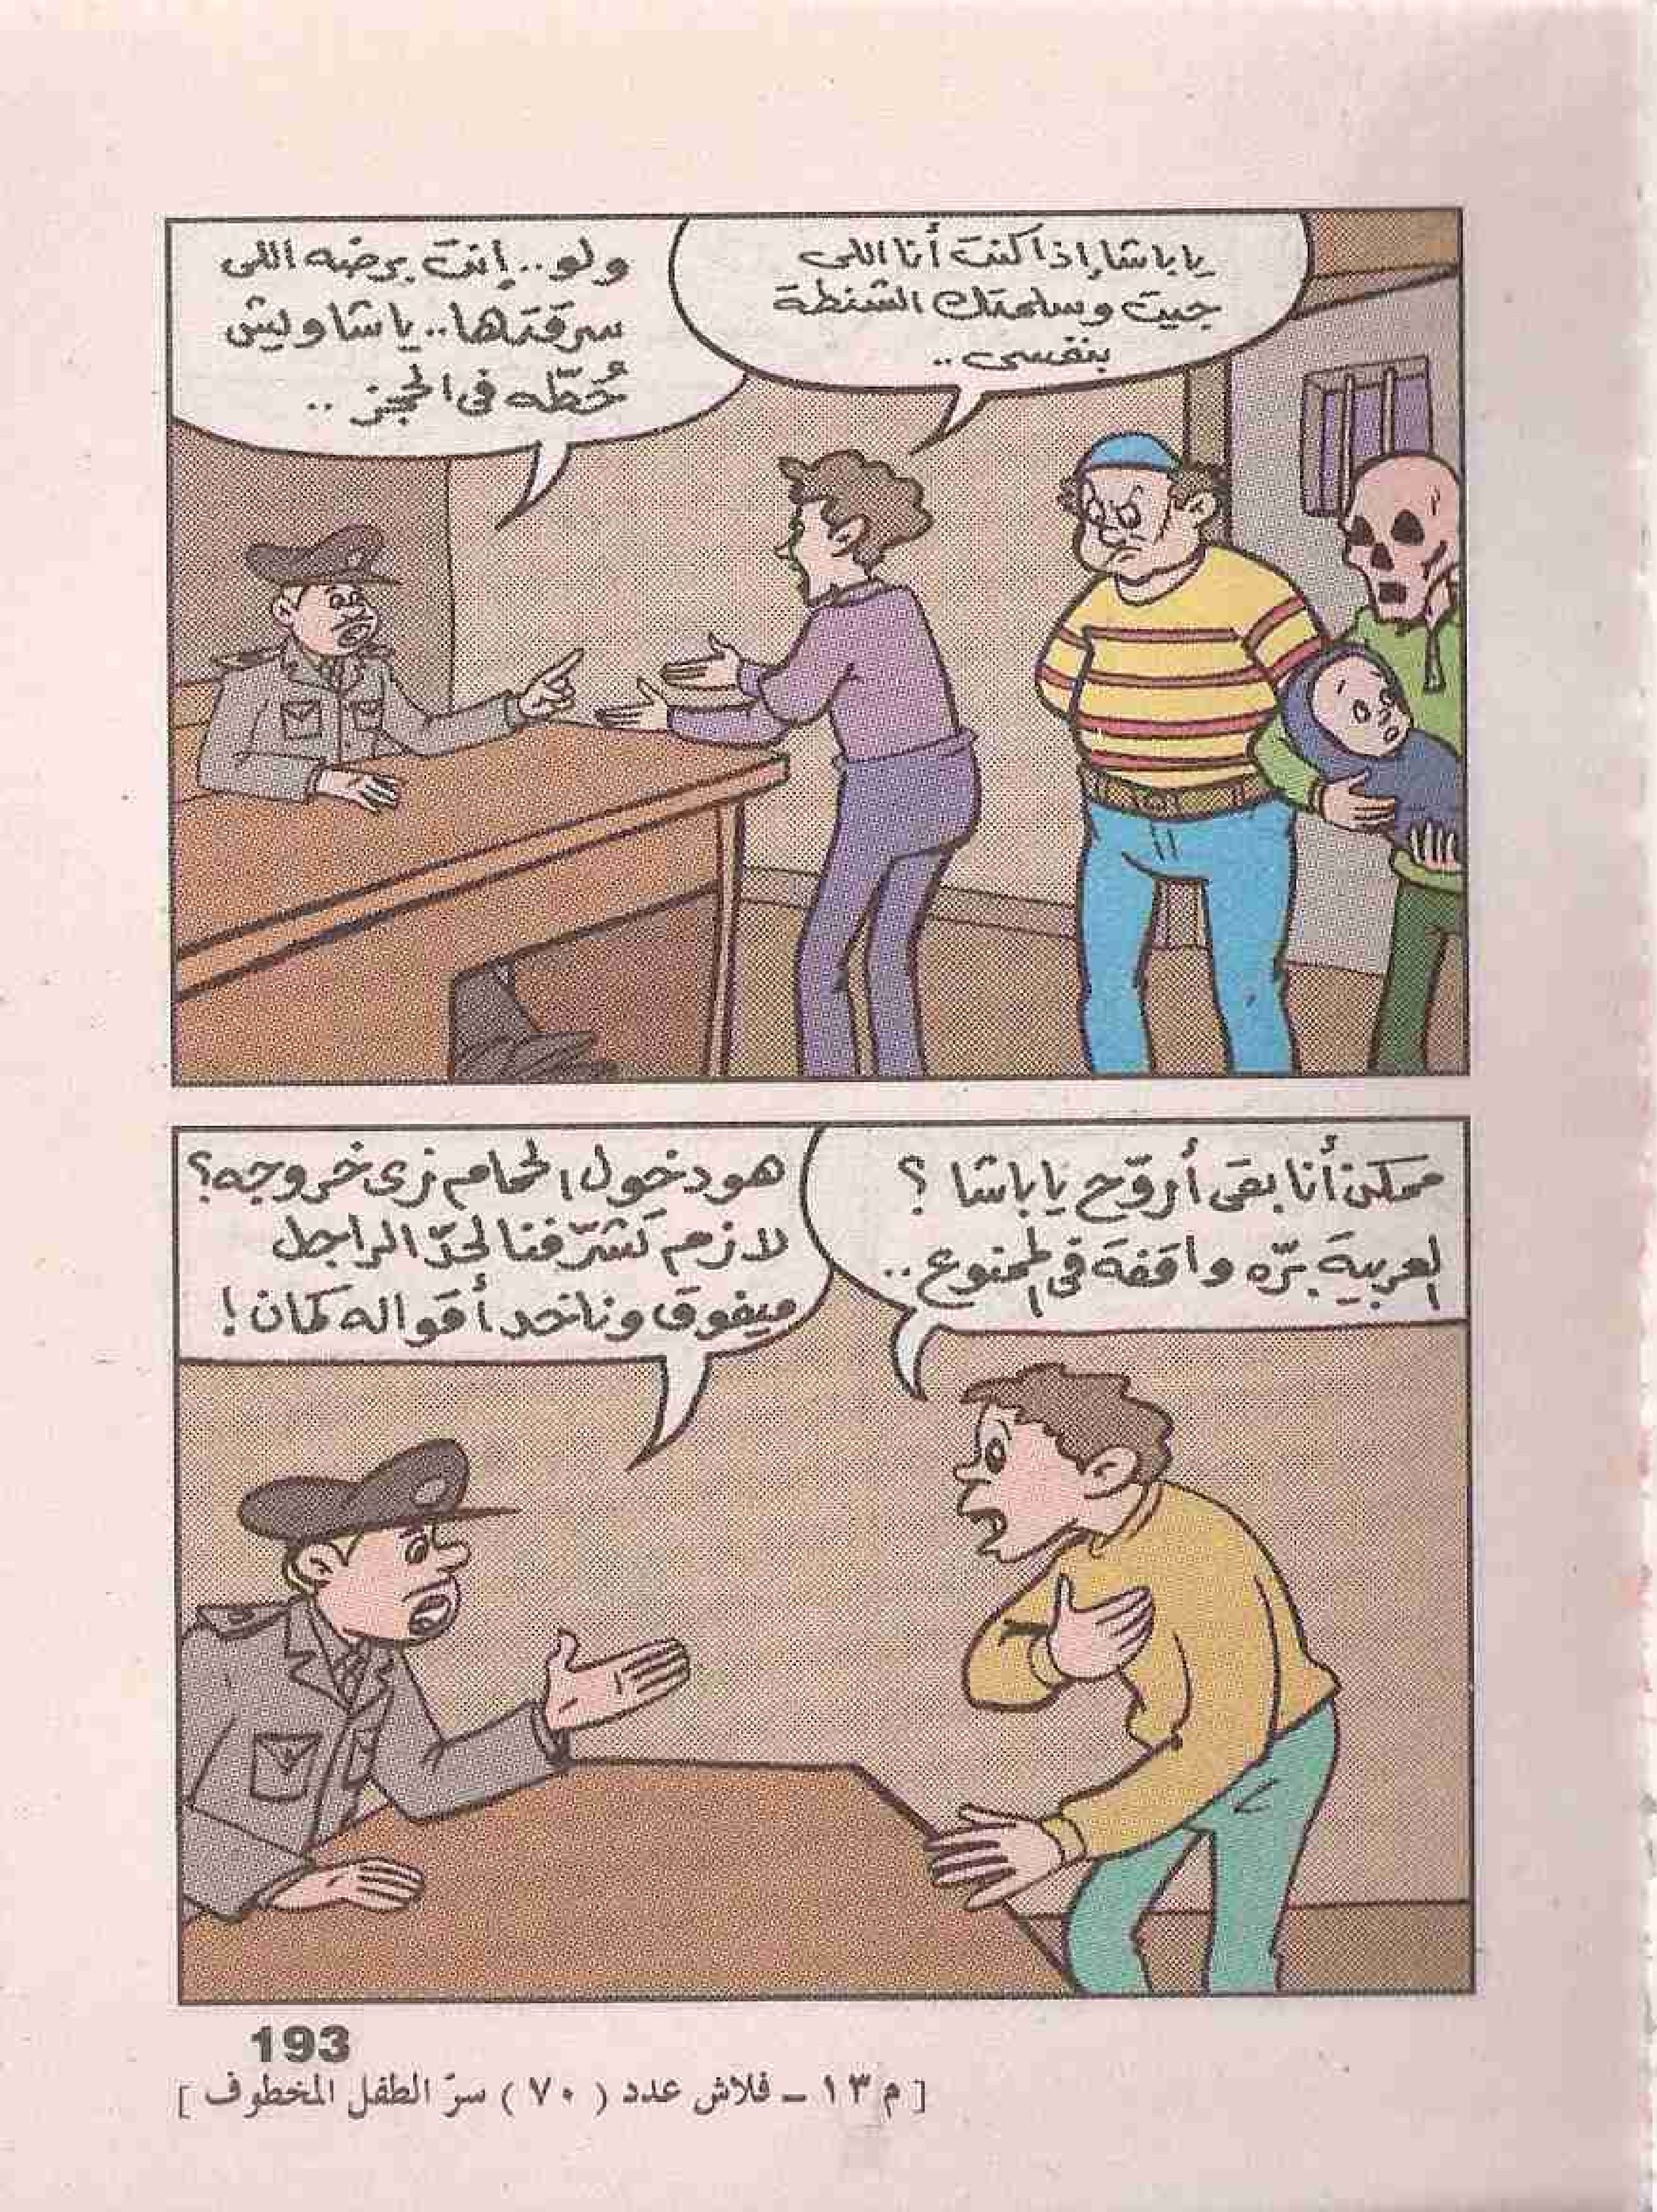 يا باشا إذا كنت أنا اللى
جيت وسلمتك الشنطة
بنفسى..
ولو.. إنت برضه اللى
سرقتها.. يا شاويش
حُطّه فى الحجز..
ممكن أنا بقى أروّح يا باشا ؟
العربية برّه واقفة فى الممنوع..
هو دخول الحمام زى خروجه؟
لازم تشرّفنا لحدّ الراجل
ميفوق وناخد أقواله كمان !
193
[ م ١٣ - فلاش عدد ( ٧٠ ) سرّ الطفل المخطوف ]